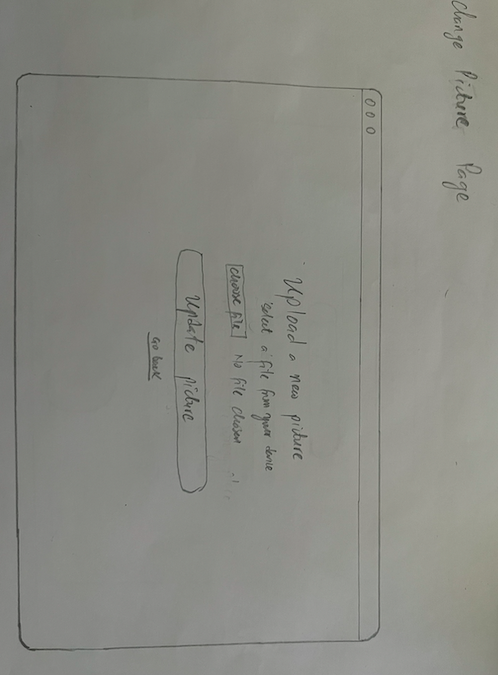 Change Picture Page
Upload a new picture
Select a file from your device
Choose file No file chosen
Update picture
Go back